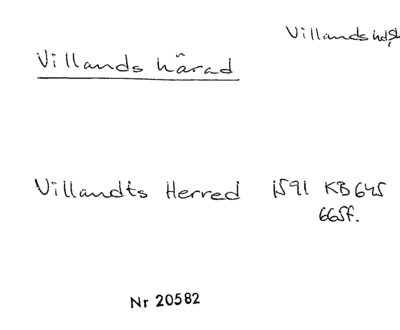 Villands hd,sk
Villands härad
Villandts Herred 1591 KB 645
665f.
Nr 20582